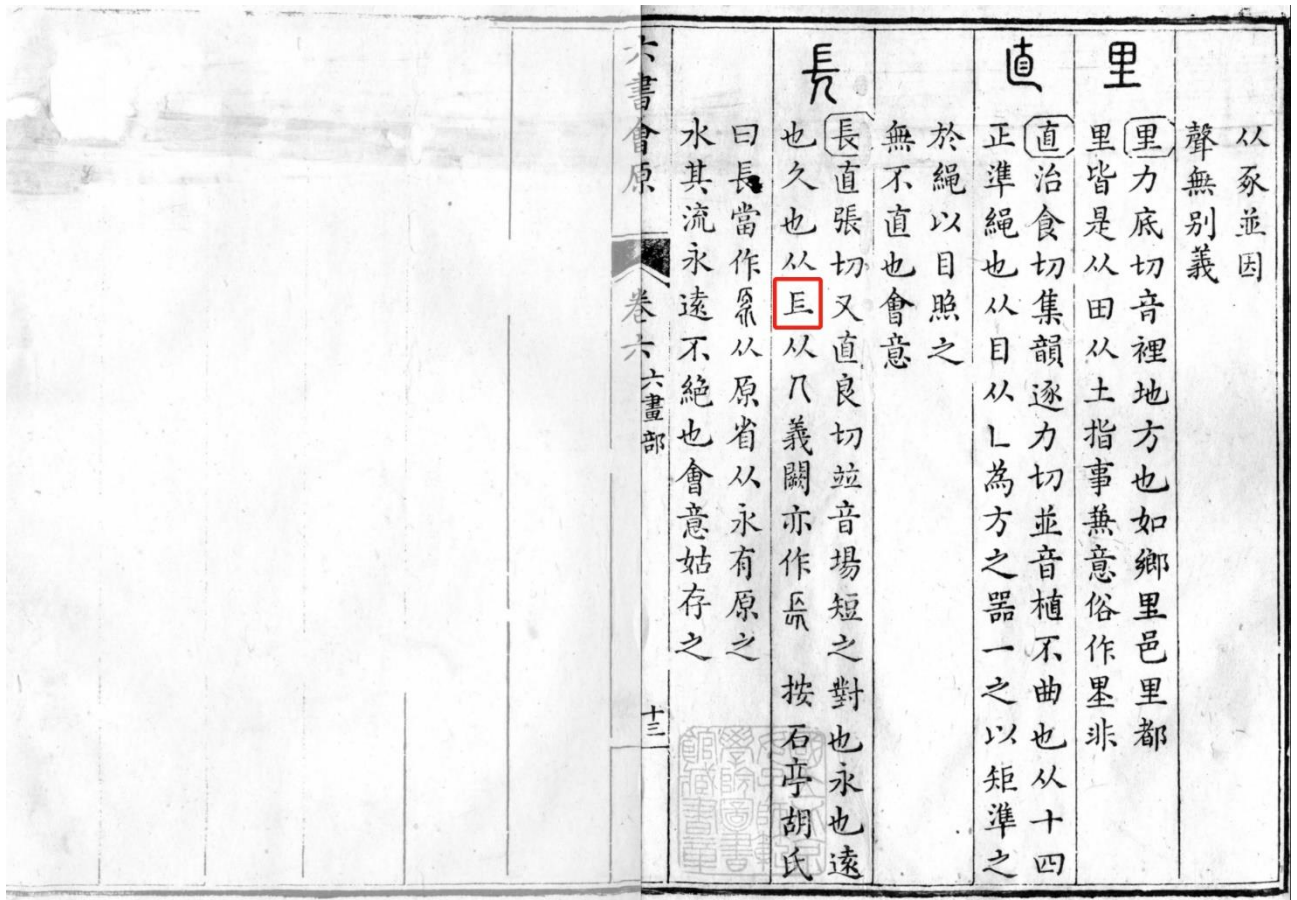 从豕並因
聲無别義
里
里力底切音裡地方也如鄉里邑里都
里皆是从田从土指事兼意俗作里非
直
直治食切集韻逐力切並音植不曲也从十四
正準繩也从目从乚為方之器一之以矩準之
於繩以目照之
無不直也會意
長
長直張切又直良切並音場短之對也永也遠
也久也从𠃊从𠘨義闕亦作 按石亭胡氏
曰長當作 从原省从永有原之
水其流永遠不絕也會意姑存之
六書會原
卷六 六畫部
十三